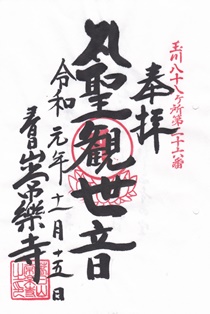 玉川八十八ヶ所第二十六番
奉拝
聖觀世音
令和元年十一月十五日
春日山常樂寺